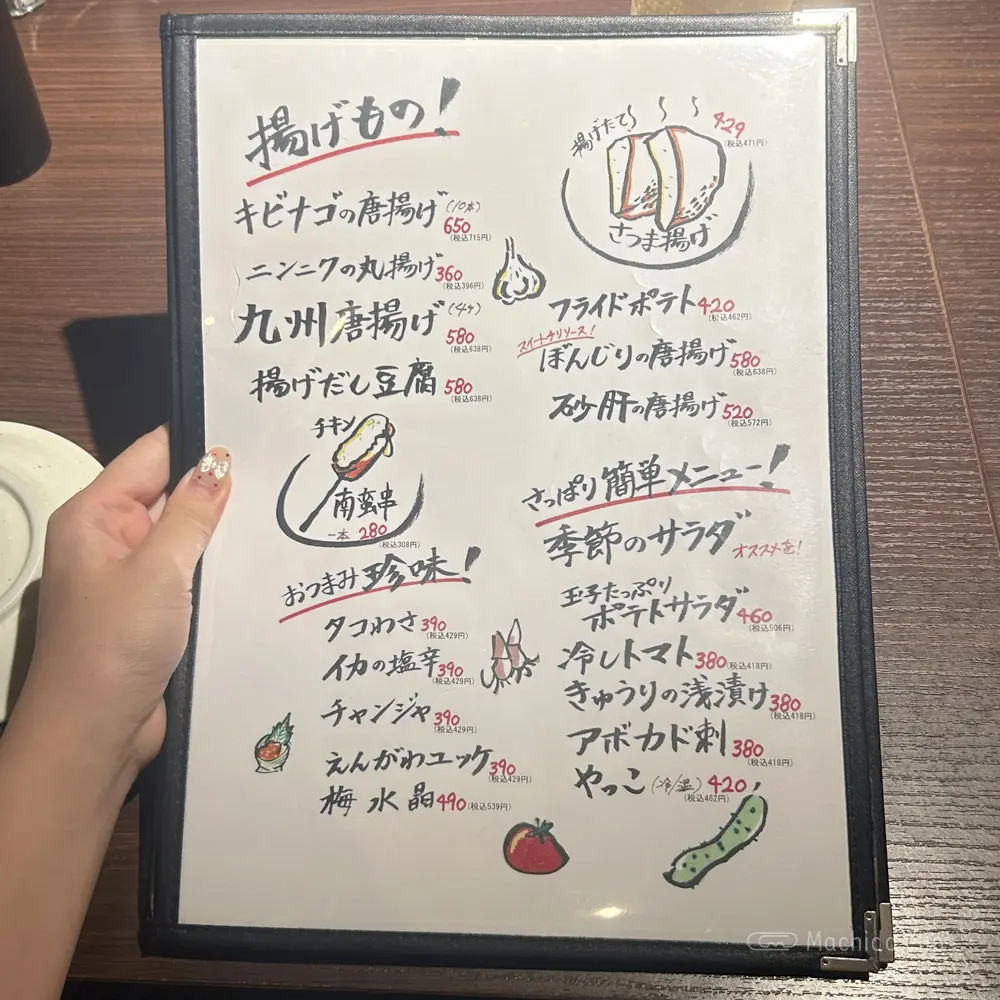 揚げもの!
キビナゴの唐揚げ(10本)
650
(税込715円)
ニンニクの丸揚げ360
(税込396円)
九州唐揚げ(4ケ)
580
(税込638円)
揚げだし豆腐 580
(税込638円)
チキン
南蛮串
一本 280
(税込308円)
おつまみ珍味!
タコわさ390
(税込429円)
イカの塩辛390
(税込429円)
チャンジャ390
(税込429円)
えんがわユッケ390
(税込429円)
梅水晶490(税込539円)
揚げたて
429
(税込471円)
さつま揚げ
フライドポテト420
(税込462円)
スイートチリソース!
ぼんじりの唐揚げ580
(税込638円)
砂肝の唐揚げ520
(税込572円)
さっぱり簡単メニュー!
季節のサラダ オススメを!
玉子たっぷり
ポテトサラダ460
(税込506円)
冷しトマト380(税込418円)
きゅうりの浅漬け380
(税込418円)
アボカド刺380
(税込418円)
やっこ(冷/温)420
(税込462円)